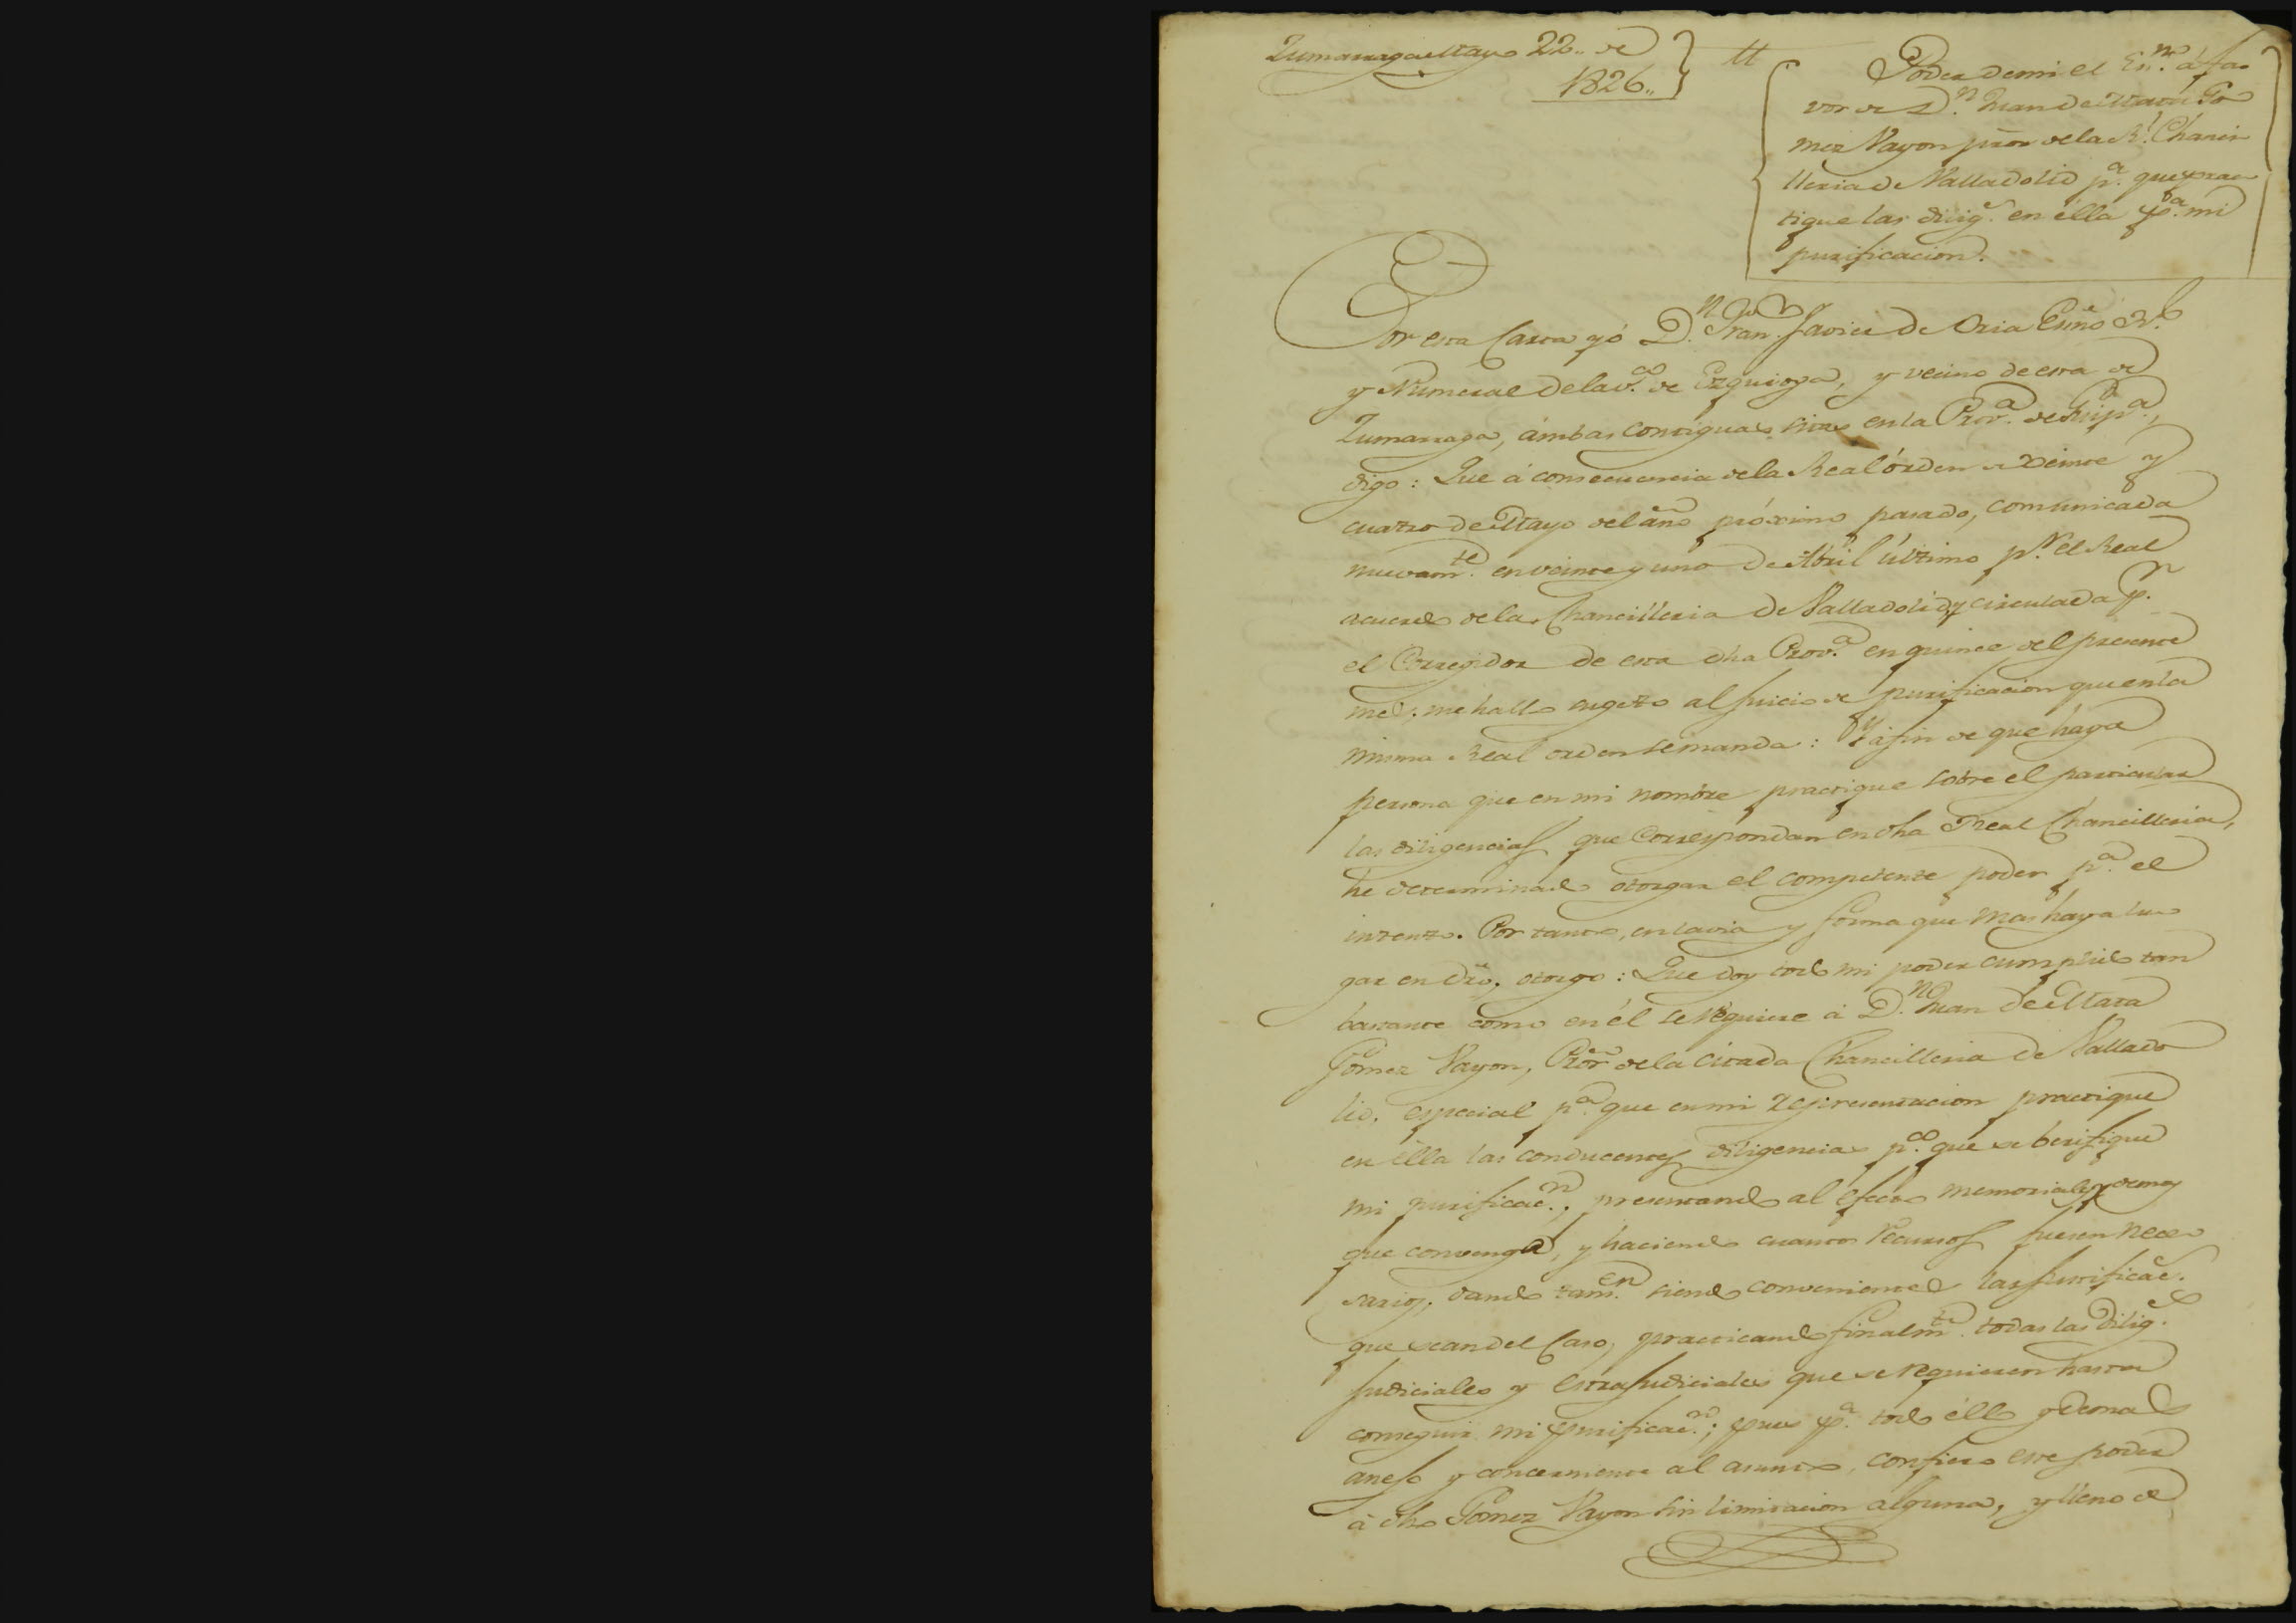 Zumarraga Mayo 22,, de
1826,,
Poder de mi el Esn.no á fa
vor de D.n Juan de Mata Go
mez Vayon p̃ror de la R.l Chanci
lleria de Valladolid p.a que prac
tique las dilig.s en élla p.a mi
purificacion.
Por esta Carta yó D.n Fran.co Javier de Oria Esno R.l
y Numeral de la v.a de Ezquioga, y vecino de esta de
Zumarraga, ámbas contiguas sitas en la Prov.a de Guip.a,
digo: Que á consecuencia de la Real órden de veinte y
cuatro de Mayo del año próximo pasado, comunicada
nuevam.te en veinte y uno de Abril último p.r el Real
acuerdo de la Chancilleria de Valladolid, y circulada p.r
el Corregidor de esta dha Prov.a en quince del presente
mes, me hallo sugeto al Juicio de purificacion que en la
misma Real orden se manda: Y á fin de que haya
persona que en mi nombre practique sobre el particular
las diligencias que Correspondan en dha Real Chancilleria,
he determinado otorgar el competente poder p.a el
intento. Por tanto, en la via y forma que mas haya lu
gar en dro, otorgo: Que doy todo mi poder cumplido tan
bastante como en él se requiere á D.n Juan de Mata
Gomez Vayon, Pror de la citada Chancilleria de Vallado
lid, especial p.a que en mi representacion practique
en élla las conducentes diligencias p.a que se berifique
mi purificac.n, presentando al efecto memoriales y demas
que convenga, y haciendo cuantos recursos fuesen nece
sarios, dando tam.en siendo conveniente las justificac.s
que sean del Caso, practicando finalm.te todas las Dilig.s
Judiciales y estrajudiciales que se requieren hasta
conseguir mi purificac.n; pues p.a todo éllo y demas
anejo y concerniente al asunto, confiero este poder
á dho Gomez Vayon sin limitacion alguna, y lleno de